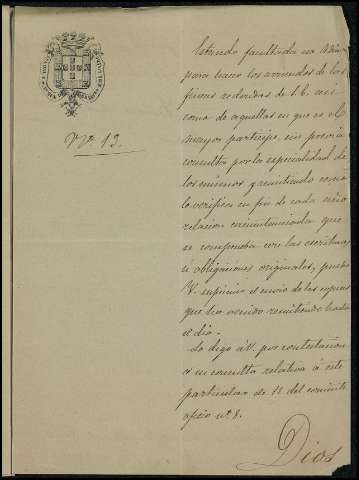 Nº 13.
Estando facultada esa Admon
para hacer los arriendos de las
fincas redondas de S. E. así
como de aquellas en que es el
mayor partícipe, sin previa
consulta por la especialidad de
los mismos y remitiendo como
lo verifica en fin de cada año
relacion circunstanciada que
se comprueba con las escrituras
ú obligaciones originales, puede
V. suprimir el envio de las copias
que ha venido remitiendo hasta
el dia.
Lo digo á V. por contestacion
á su consulta relativa á este
particular de 11 del corriente
oficio nº 8.
Dios